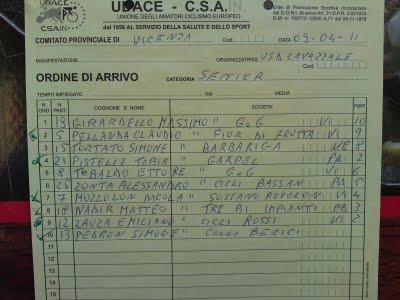 UDACE - C.S.A.IN.
UNIONE DEGLI AMATORI CICLISMO EUROPEO
dal 1956 AL SERVIZIO DELLA SALUTE E DELLO SPORT
Ente di Promozione Sportiva riconosciuto
COMITATO PROVINCIALE DI VICENZA Cod. DATA 09-04-11
MANIFESTAZIONE ORGANIZZATRICE USD. CAVAZZALE
Cod.
ORDINE DI ARRIVO CATEGORIA SENIOR
TEMPO IMPIEGATO KM MEDIA
N. ORD N. PART. COGNOME E NOME SOCIETÀ PUNTI
1 19 GIRARDELLO MASSIMO " G&G VI 10
2 5 PELLANDA CLAUDIO " FIOR DI FRUTTA VI 9
3 15 TORTATO SIMONE " BARBARIGA VE 8
4 21 PISTELLO TOBIA " GARPEL PD
5 8 TOBALDO ETTORE " G&G VI 6
6 25 ZONTA ALESSANDRO " CICLI BASSAN PD 5
7 7 MUZZOLON NICOLA " SOSSANO ROVOLON VI 4
8 18 NADIR MATTEO " TRE BI IMPIANTI PD 3
9 12 ZAUZA EMILIANO " CICLI ROSSI VI 2
10 13 PEDRON SIMONE " COLLI BERICI